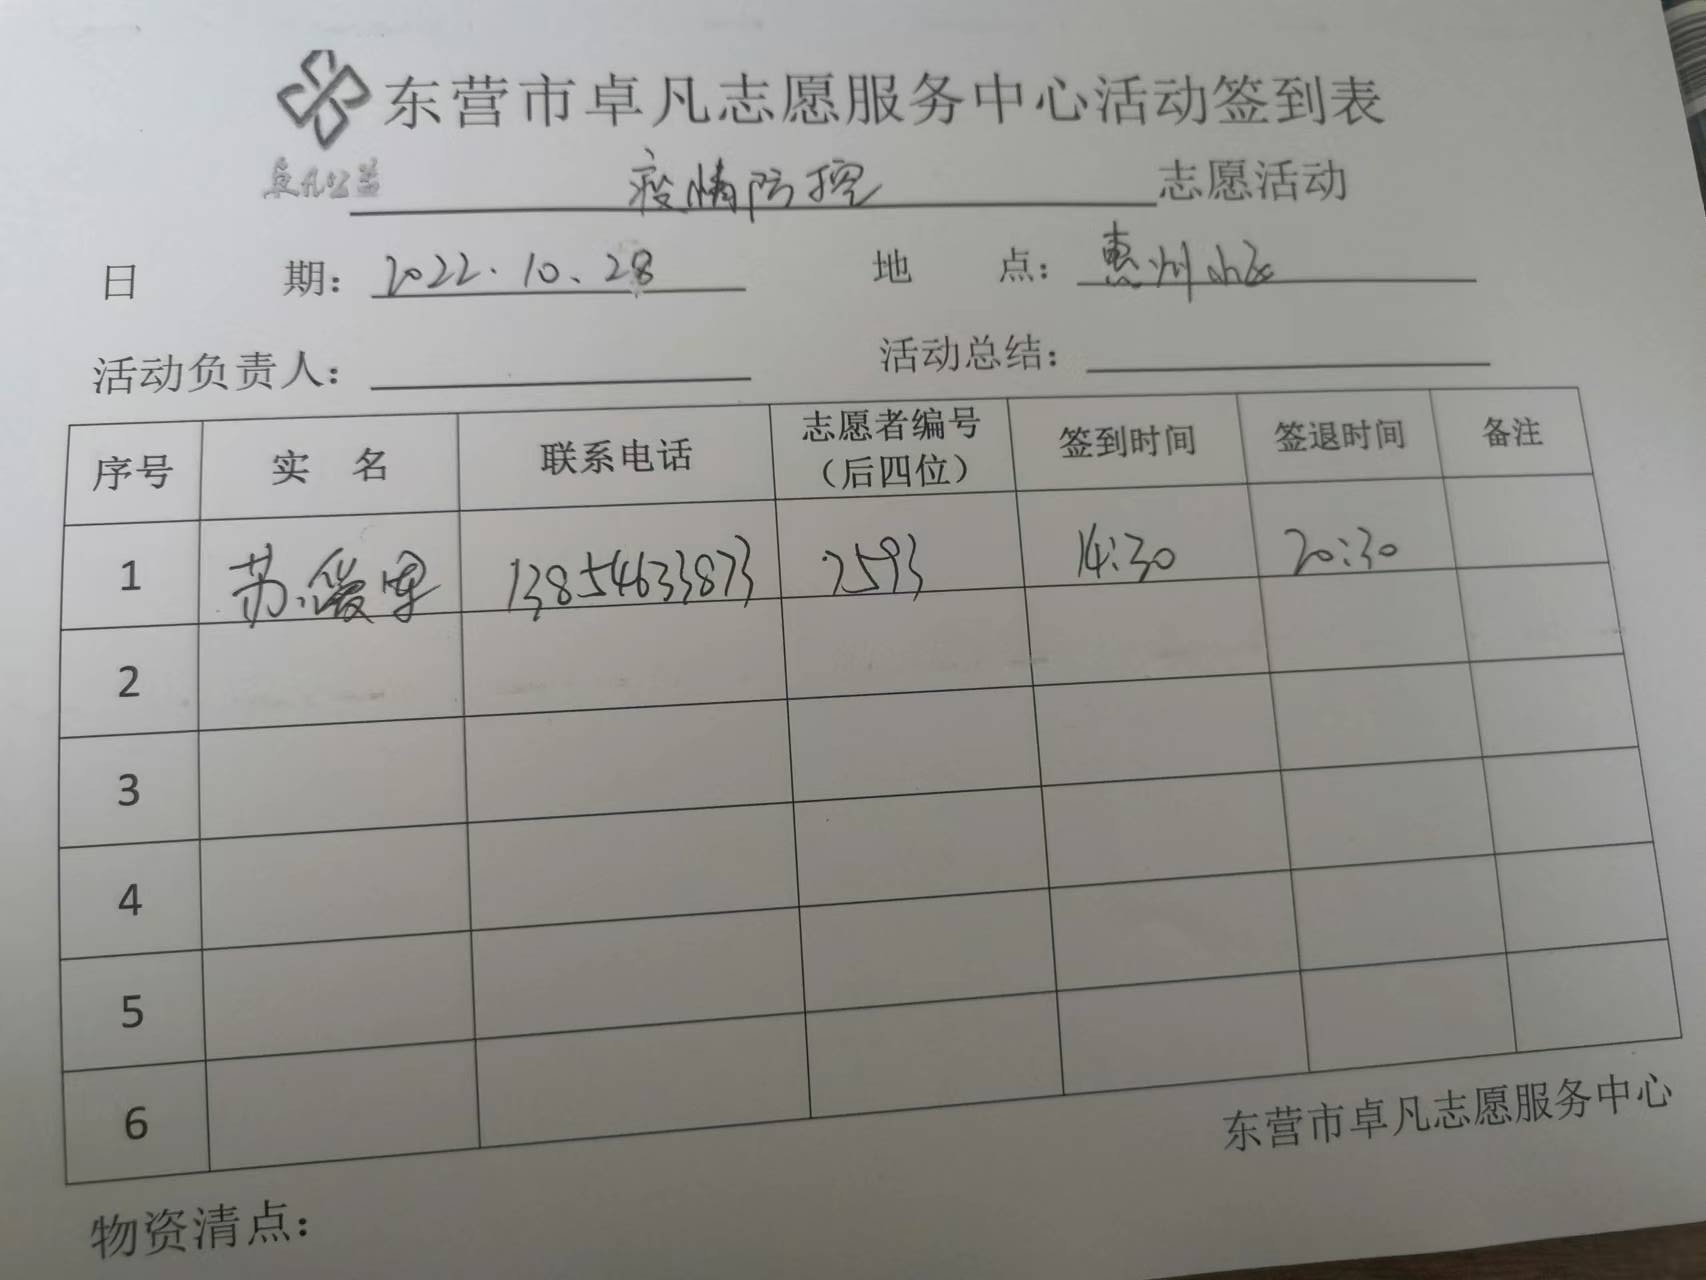 东营市卓凡志愿服务中心活动签到表
卓凡公益
疫情防控志愿活动
日 期：2022.10.28 地 点：惠州小区
活动负责人： 活动总结：
序号 实 名 联系电话 志愿者编号（后四位） 签到时间 签退时间 备注
1 苏 军 13854633873 2593 14:30 20:30
2
3
4
5
6
东营市卓凡志愿服务中心
物资清点：